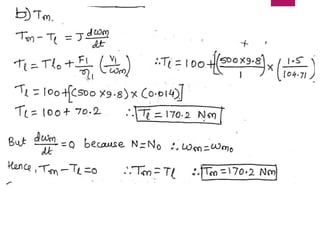 b) Tm.
Tm - Tl = J dwm/dt
Tl = Tlo + F1/η1 (V1/wm) ∴ Tl = 100 + [(500×9.8)/1 × (1.5/104.71)]
Tl = 100 + [(500×9.8) × (0.014)]
Tl = 100 + 70.2 ∴ Tl = 170.2 Nm
But dwm/dt = 0 because N=No ∴ wm = wmo
Hence, Tm - Tl = 0 ∴ Tm = Tl ∴ Tm = 170.2 Nm